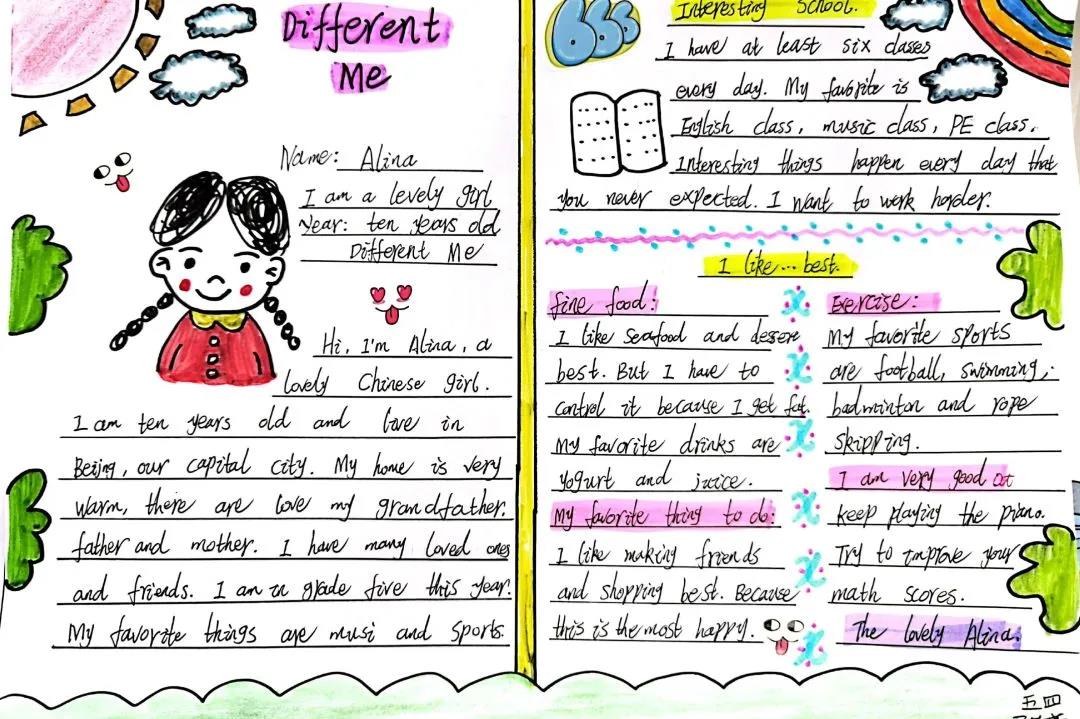 Different
Me
Name: Alina
I am a lovely girl
Year: ten years old
Different Me
Hi, I'm Alina, a
lovely Chinese girl.
I am ten years old and live in
Beijng, our capital city. My home is very
warm, there are love my grandfather.
father and mother. I have many loved ones
and friends. I am in grade five this year.
My favorite things are musi and sports.
666
Interesting School.
I have at least six clases
every day. My favorite is
English class, music class, PE class.
Interesting things happen every day that
you never expected. I want to work harder.
I like... best.
fine food:
I like seafood and dessere
best. But I have to
control it because I get fat.
My favorite drinks are
yogurt and juice.
My favorite thing to do:
I like making friends
and shopping best. Because
this is the most happy.
Exercise:
My favorite sports
are football, swimming,
badminton and rope
skipping.
I am very good at
keep playing the piano.
Try to improve your
math scores.
The lovely Alina.
五四